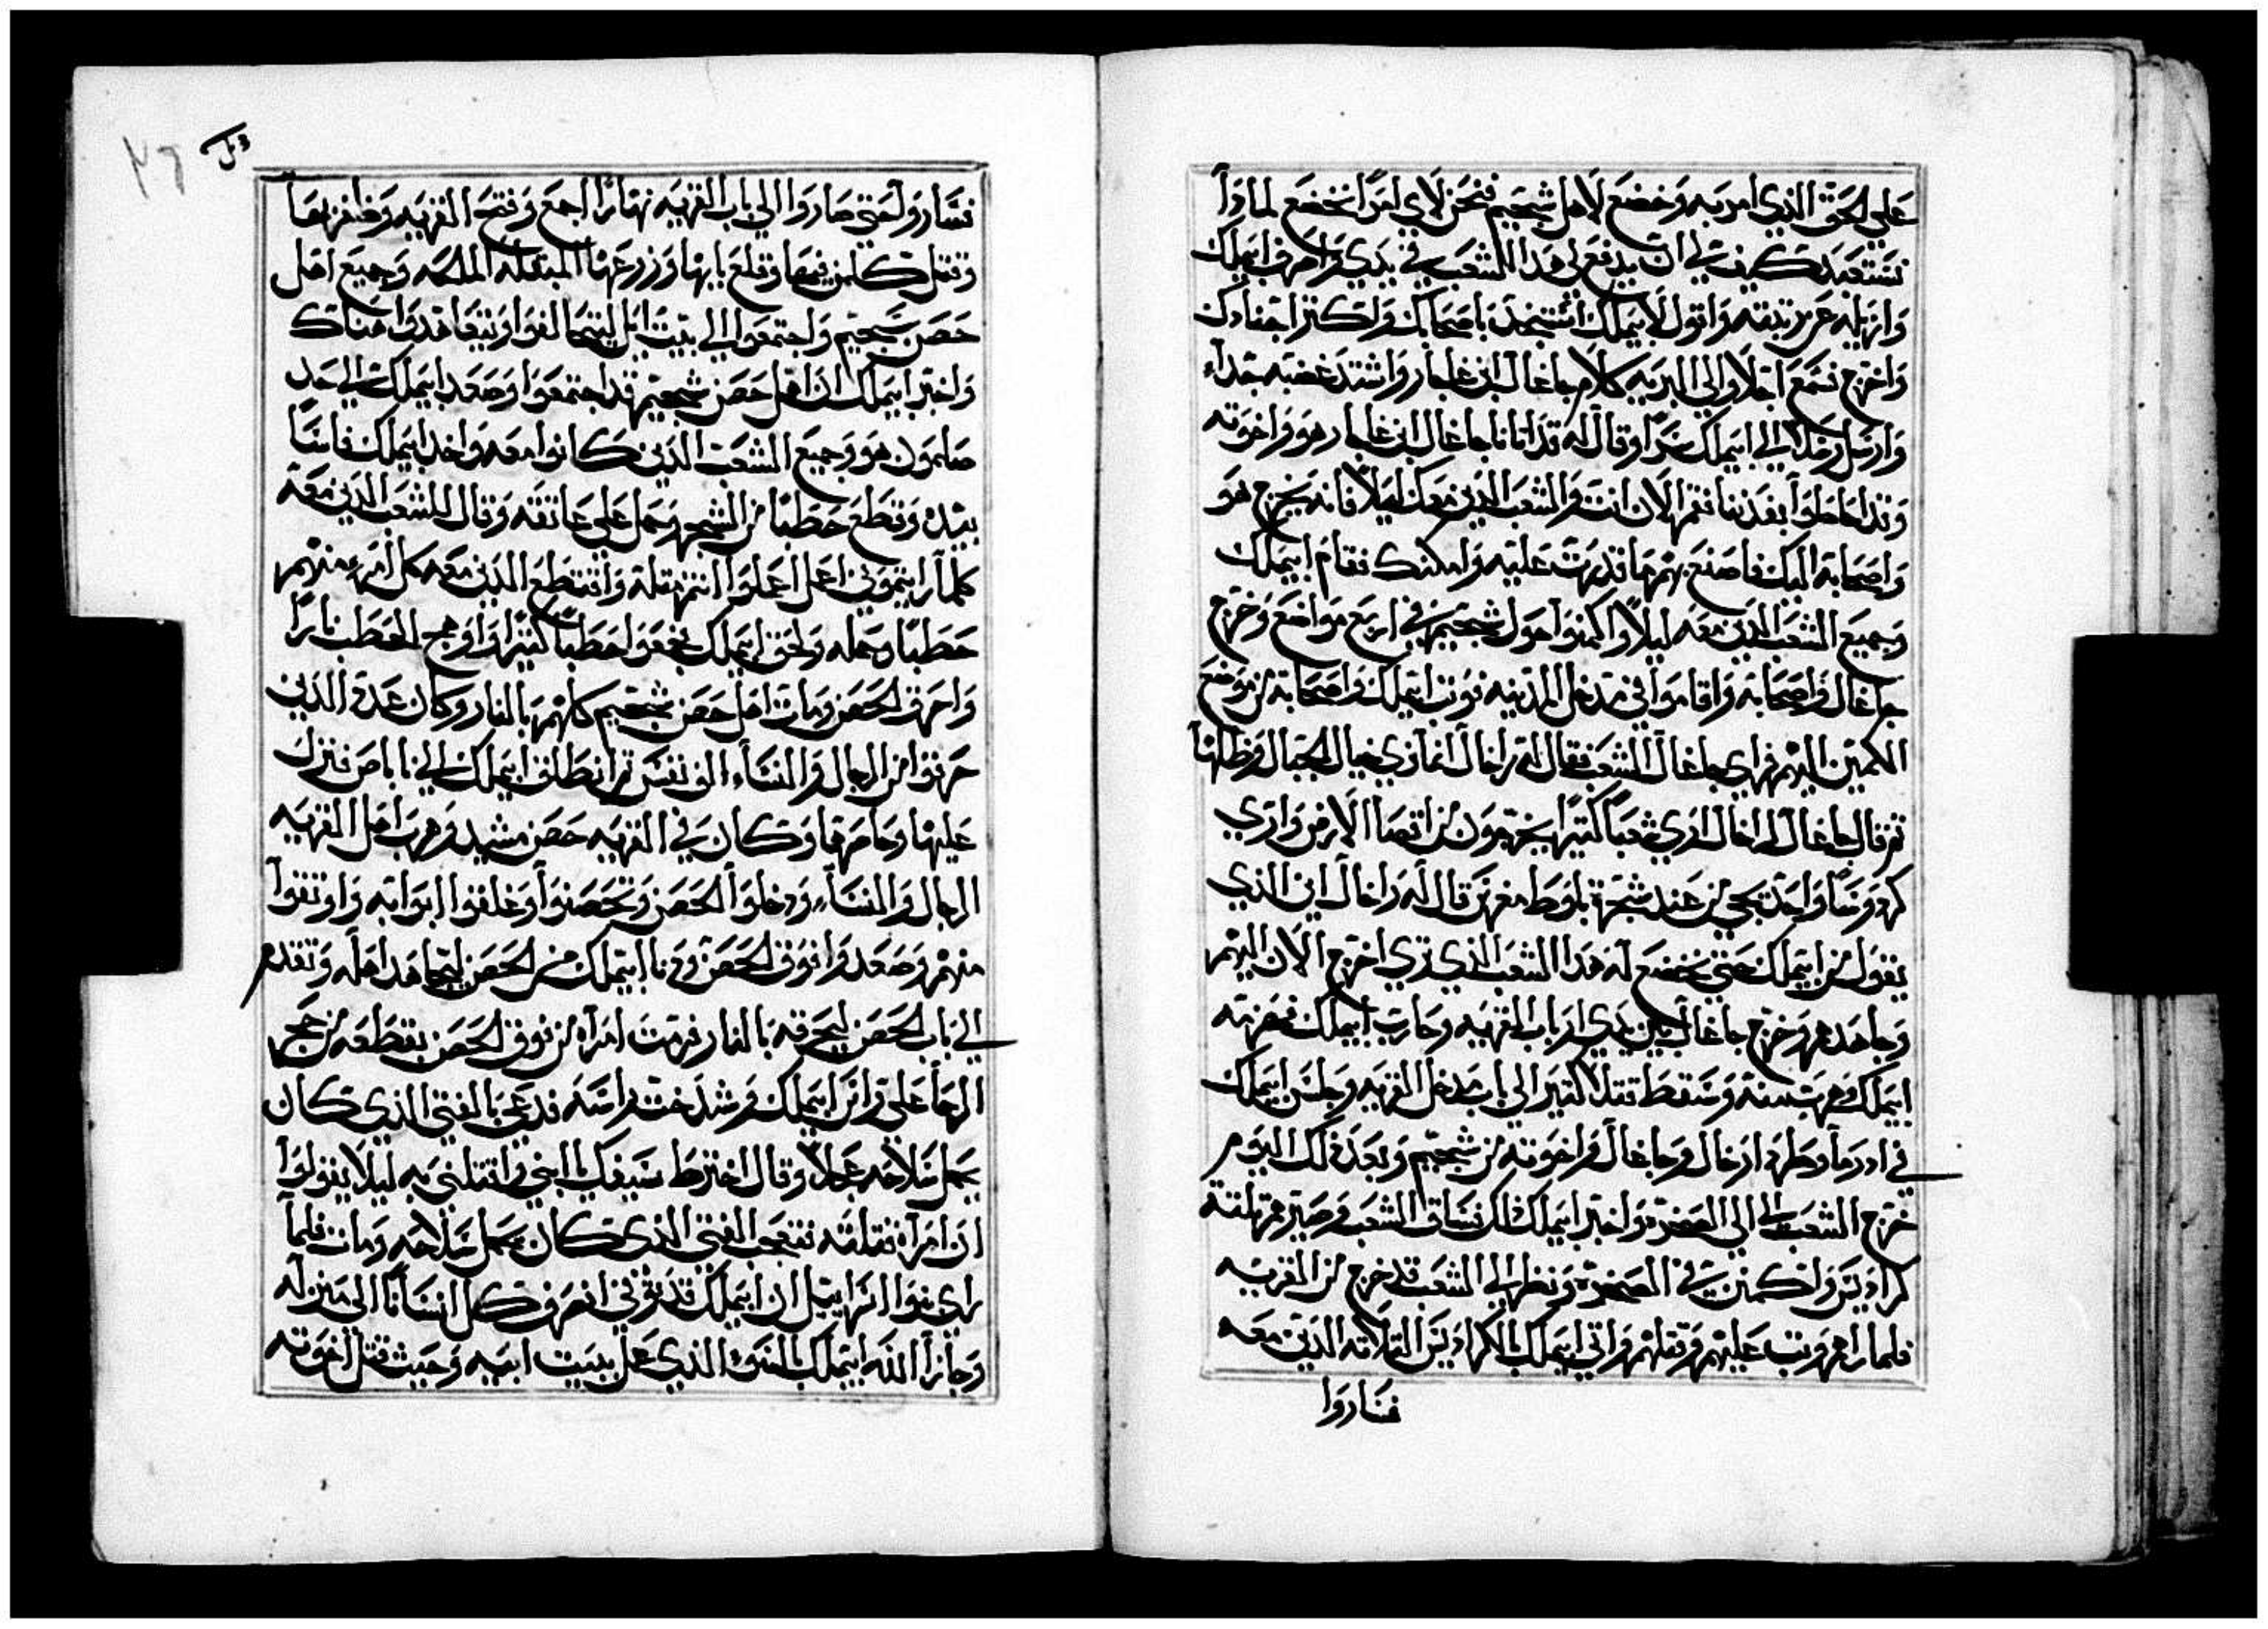 علي الحق الذي امر به وخضع لاهل شجيم فنحن لاي امرًا نخضع لماذا
نستعبد كيف لي ان يدفع لي هذا الشعب في يدي واصرف ايملك
وازيله عن رتبته واقول لايملك استنجد باصحابك واكثر اجنادك
واخرج فسمع اجلاوالي البريه كلام جاغال ابن غاجار واشتد غضبه جداء
وارسل رسلاً الي ايملك سرًا وقال له قد اتانا جاغال ابن غاجار هو واخوته
وقد احاطوا بقديننا فقم الان انت والشعب الدين معك ليلاً فانه يخرج هو
واصحابه اليك فاصنع بهم ما قدرت عليه وامكنك فقام ايملك
وجميع الشعب الدين معه ليلاً واكمنوا حول شجيم في اربع مواضع وخرج
جاغال واصحابه واقاموا في مدخل المدينه فوتب ايملك واصحابه من موضع
الكمين اليهم فراي جاغال الشعب فقال له زاخال انما تري خيال الجبال وظلها
تم قال جاغال لزاخال اري شعبًا كتيرًا يخرجون من اقصا الارض واري
كردوسًا واحد يجي من عند شجرة بلوط معرين قال له زاخال اين الذي
يقول من ايملك حتي نخضع له هدا الشعب الذي تري اخرج الان اليهم
وجاهدهم وخرج جاغال بين يدي ارباب القريه وحارب ايملك فهزمه
ايملك وهرب منه وسقط قتلا كتير الي باب مدخل القريه وجلس ايملك
في ادرما وطرد ازخال وجاغال واخوته من شجيم وبعد ذلك اليوم
خرج الشعب الي الصخره واخبر ايملك بذلك فساق الشعب وصيرهم تلتة
كراديس واكمن في الصخره ونظر الي الشعب قد خرج من القريه
فلما راهم وتب عليهم وقتلهم واتي ايملك بالكراديس التلاته الدين معه
فساروا
فساروا حتي صاروا الي باب القريه نهارًا اجمع وفتح القريه وظفر بها
وقتل كل من فيها وقلع بابها وزرعها المبتله الملحه وجميع اهل
حصن شجيم واجتمعوا الي بيت ايل ليتحالفوا ويتعاهدوا هناك
واخبر ايملك ان اهل حصن شجيم قد اجتمعوا وصعد ايملك الي جبل
صلمون هو وجميع الشعب الدين كانوا معه واخد ايملك فاسًا
بيده وقطع حطبًا من الشجر وحمل علي عاتقه وقال للشعب الدين معه
كلما رايتموني اعمل اعملوا انتم متله واقتطع الدين معه كل امرء منهم
حطبًا وحمله ولحق ايملك فجمعوا حطبًا كتيرًا واوهج الحطب نارًا
واحرق الحصن ومات اهل حصن شجيم كلهم بالنار وكان عدة الدين
حرقوا من الرجال والنساء الف نفس تم انطلق ايملك الي ناباص فنزل
عليها وحاصرها وكان في القريه حصن مشيد وهرب اهل القريه
الرجال والنساء ودخلوا الحصن وتحصنوا وغلقوا ابوابه واوتقوا
منهم وصعدوا فوق الحصن ودنا ايملك من الحصن ليجاهد اهله وتقدم
الي باب الحصن ليحرقه بالنار فرمت امراه من فوق الحصن بقطعه من حجر
الرحا علي راس ايملك وشدخت راسه فدعي بالفتي الذي كان
يحمل سلاحه عجلاً وقال اخترط سيفك يا اخي واقتلني به ليلا يقولوا
ان امراه قتلته فتعجب الفتي الذي كان يحمل سلاحه ومات فلما
راي بنوا اسراييل ان ايملك قد توفي انصرف كل انسانًا الي منزله
وجازا الله ايملك بالسوء الذي عمل ببيت ابيه وحيث قتل اخوته